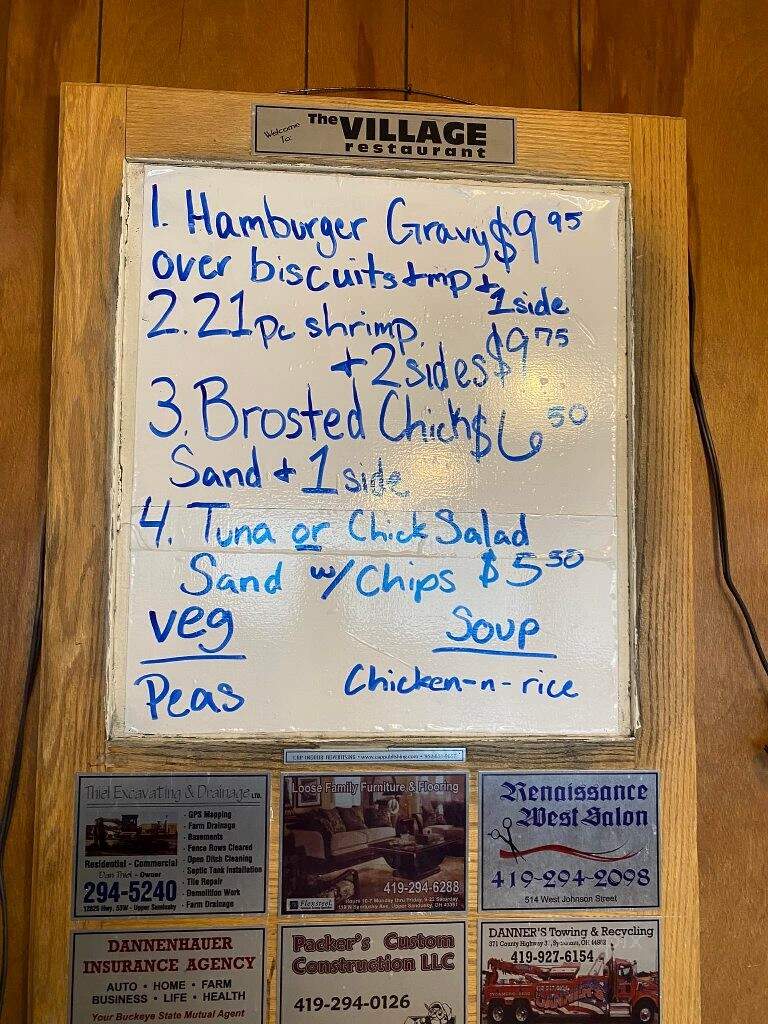 Welcome To:
The VILLAGE
restaurant
1. Hamburger Gravy $9 95
over biscuits + mp +
1 side
2. 21 pc shrimp
+ 2 sides $9 75
3. Brosted Chick $6 50
Sand + 1 side
4. Tuna or Chick Salad
Sand w/ Chips $5 50
veg Soup
Peas Chicken-n-rice
Thiel Excavating & Drainage LTD.
· GPS Mapping
· Farm Drainage
· Basements
· Fence Rows Cleared
· Open Ditch Cleaning
· Septic Tank Installation
· Tile Repair
· Demolition Work
· Farm Drainage
Residential - Commercial
Dan Thiel - Owner
294-5240
Loose Family Furniture & Flooring
419-294-6288
Flexsteel
Renaissance
West Salon
419-294-2098
514 West Johnson Street
DANNENHAUER
INSURANCE AGENCY
AUTO · HOME · FARM
BUSINESS · LIFE · HEALTH
Your Buckeye State Mutual Agent
Packer's Custom
Construction LLC
419-294-0126
DANNER'S Towing & Recycling
419-927-6154